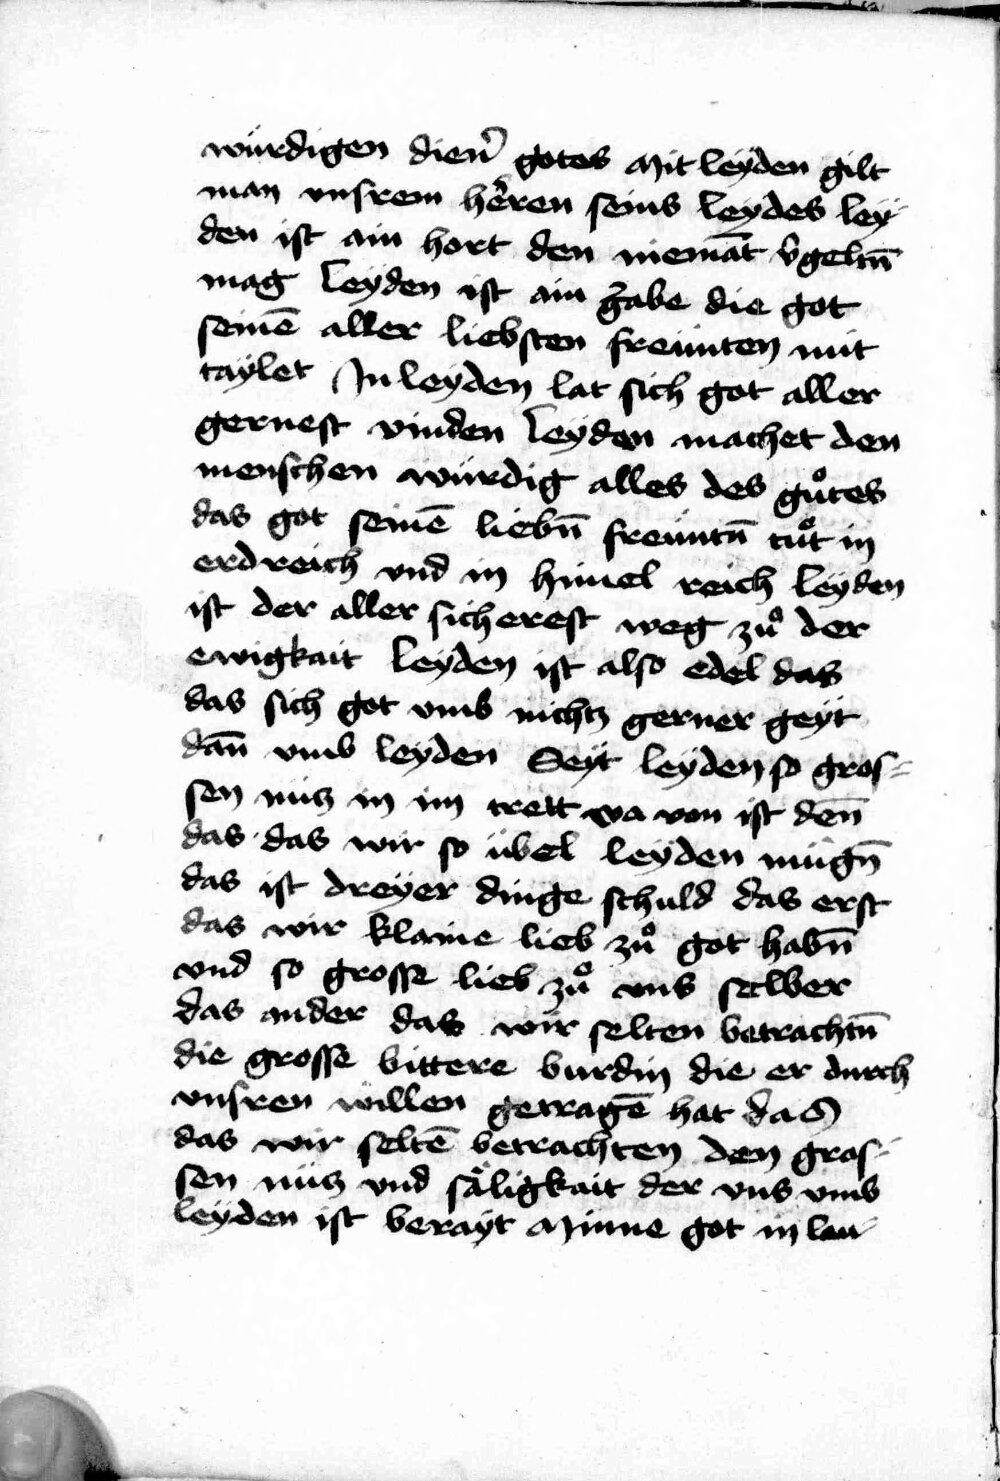 würdigen dien̉ gotes Mit leÿden gilt
man vnsrem hẻren seins leÿdes leÿ-
den ist ain hort den niemāt v̉geltn̄
mag Leÿden ist ain gabe die got
seinē aller liebsten freünten mit
taÿlet In leÿden lat sich got aller
gernest vinden Leÿden machet den
menschen würdig alles des gůtes
das got seinē liebn̄ freüntn̄ tůt in
erdreich vnd in himel reich leÿden
ist der aller sicherest weg zů der
ewigkait Leÿden ist also edel das
das sich got vmb nichtz gerner geÿt
dan̄ vmb leÿden Seÿt leÿden so gros=
sen nütz in im trett wa von ist den̄
das das wir so übel leÿden mügn̄
das ist dreÿer dinge schuld das erst
das wir klaine lieb zů got habn̄
vnd so grosse lieb zů vns selber
das ander das wir selten betrachtn̄
die grosse bittere burdin die er durch
vnsren willen getragē hat daS
das wir seltē betrachten den gros-
sen nütz vnd säligkait der vns vmb
leÿden ist beraÿt Minne got in lau-